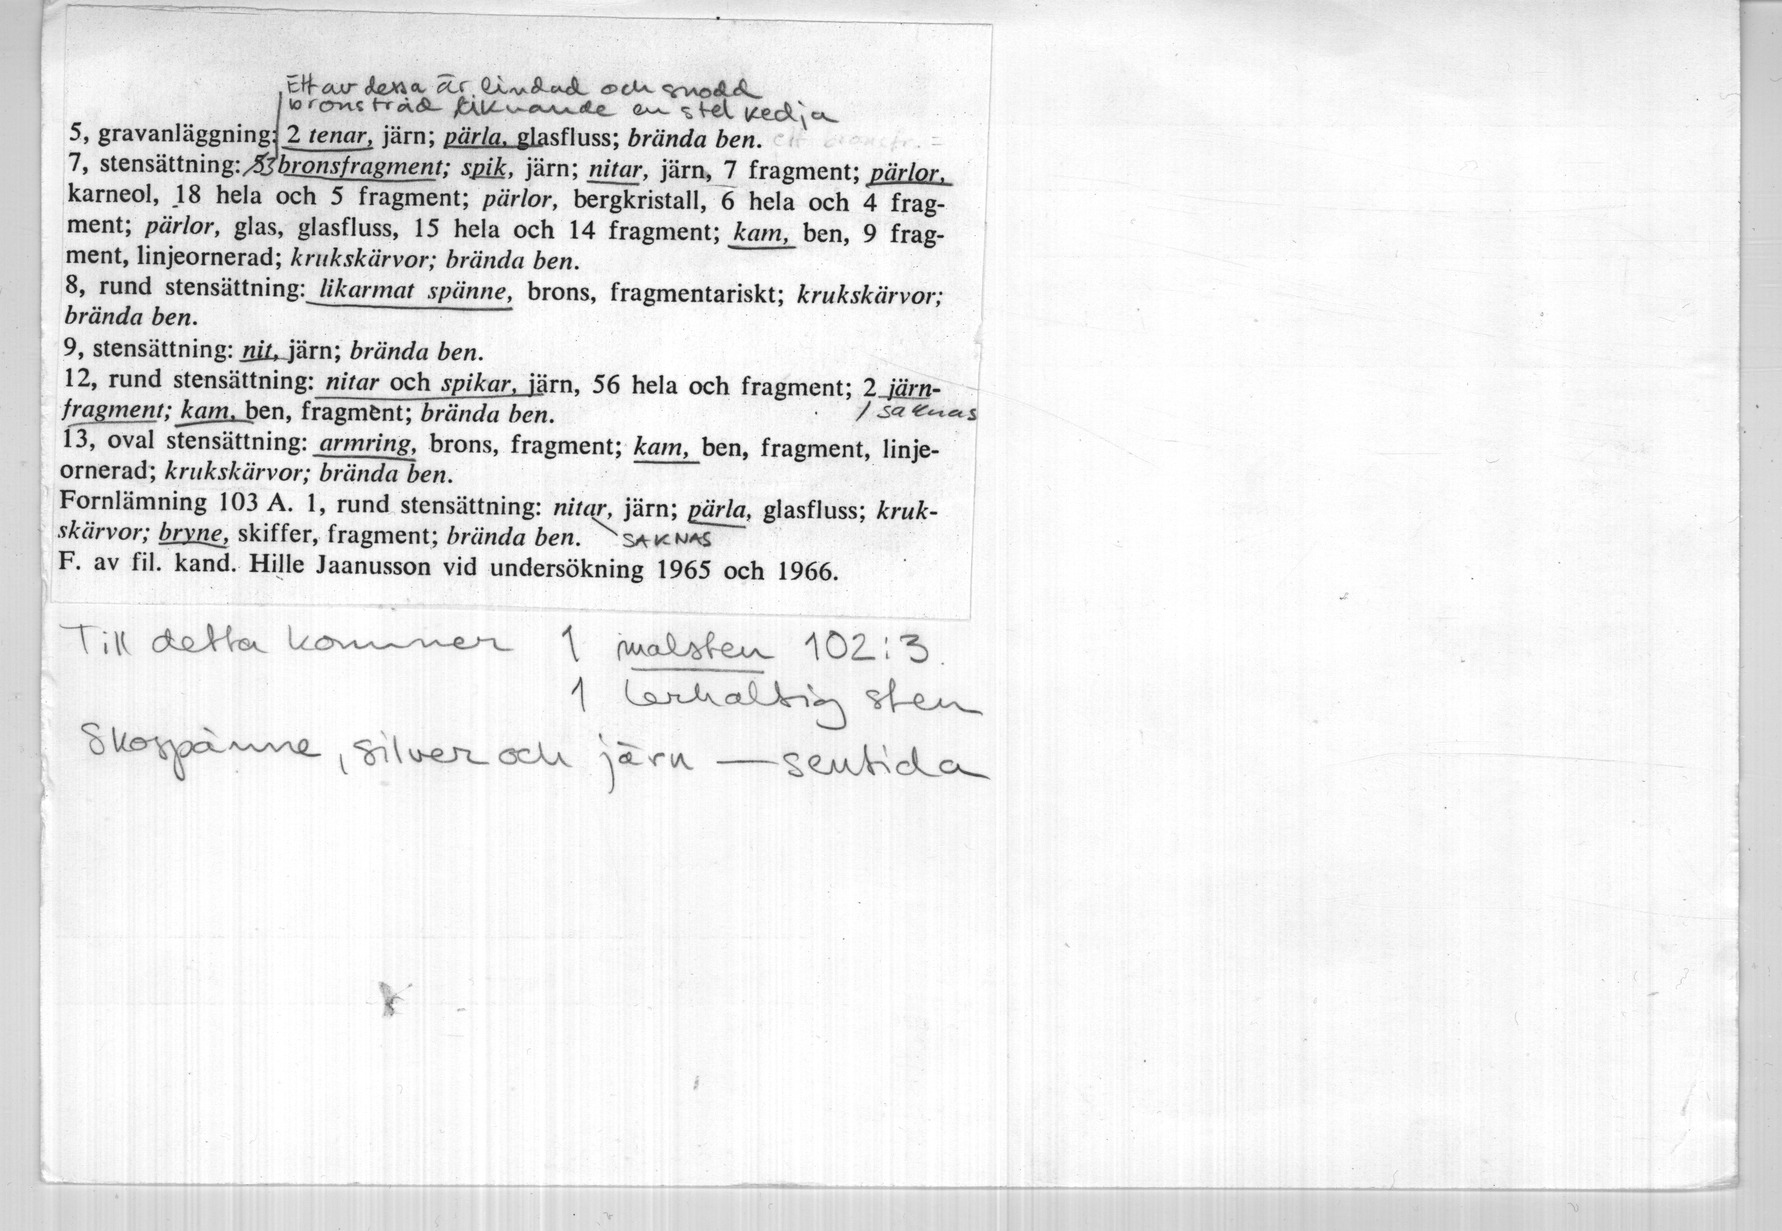 Ett av dessa är lindad och snodd
bronstråd liknande en stel kedja
5, gravanläggning: 2 tenar, järn; pärla, glasfluss; brända ben.
7, stensättning: 53 bronsfragment; spik, järn; nitar, järn, 7 fragment; pärlor,
karneol, 18 hela och 5 fragment; pärlor, bergkristall, 6 hela och 4 frag-
ment; pärlor, glas, glasfluss, 15 hela och 14 fragment; kam, ben, 9 frag-
ment, linjeornerad; krukskärvor; brända ben.
8, rund stensättning: likarmat spänne, brons, fragmentariskt; krukskärvor;
brända ben.
9, stensättning: nit, järn; brända ben.
12, rund stensättning: nitar och spikar, järn, 56 hela och fragment; 2 järn-
fragment; kam, ben, fragment; brända ben. 1 saknas
13, oval stensättning: armring, brons, fragment; kam, ben, fragment, linje-
ornerad; krukskärvor; brända ben.
Fornlämning 103 A. 1, rund stensättning: nitar, järn; pärla, glasfluss; kruk-
skärvor; bryne, skiffer, fragment; brända ben. SAKNAS
F. av fil. kand. Hille Jaanusson vid undersökning 1965 och 1966.
Till detta kommer 1 malsten 102:3.
1 lerhaltig sten
Skospänne, silver och järn — sentida